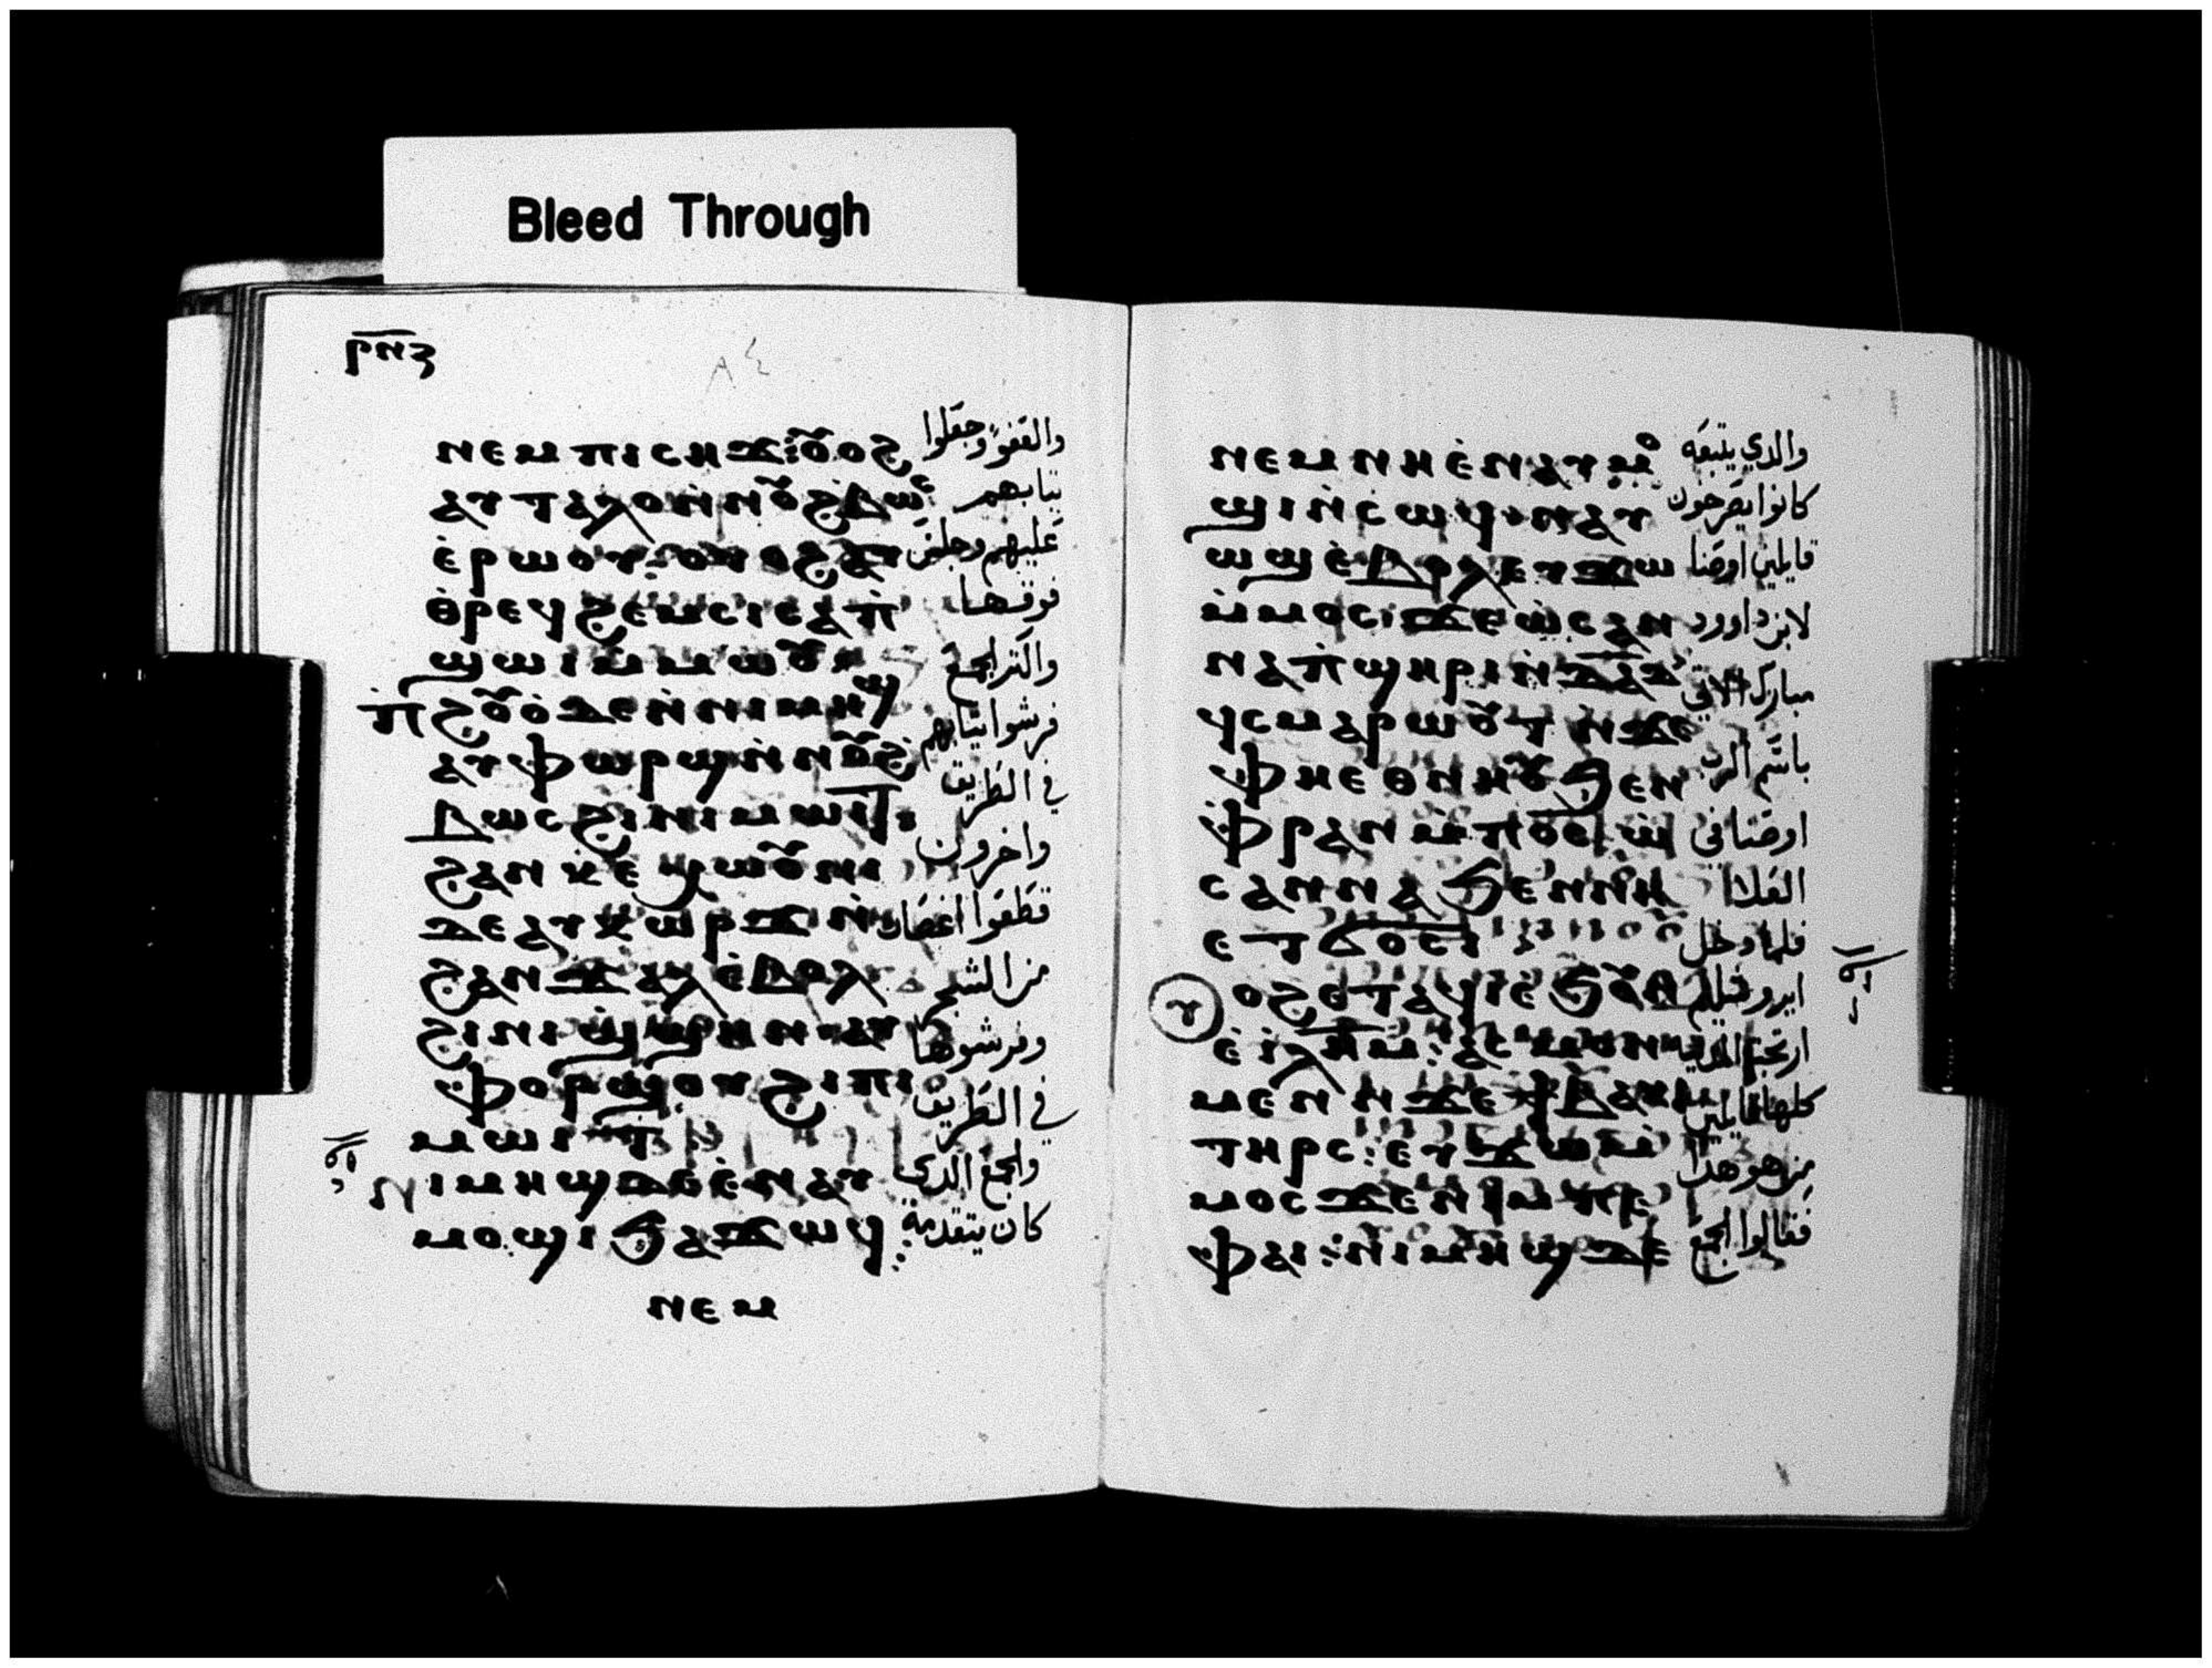 Bleed Through
ⲣⲛⲍ
ⲛⲉⲙ ⲡⲓⲥⲏϫ: ⲟⲩⲟϩ
والعفو وجعلوا
ⲁⲩⲧⲁⲗⲟ ⲛ̀ⲛⲟⲩϩⲃⲱⲥ
ثيابهم
ⲉ̀ⲣⲱⲟⲩ: ⲟⲩⲟϩ ⲁⲩ
عليهم وجلس
ⲑ̀ⲣⲉϥϩⲉⲙⲥⲓ ⲥⲁⲡ̀
فوقها
ϣⲱⲓ ⲙ̀ⲙⲱⲟⲩ
واكثر الجمع
ⲡ̀ϩⲟⲩⲟ̀ ⲇⲉ ⲛ̀ⲛⲓⲙⲏϣ
فرشوا ثيابهم
ⲁⲩⲫⲱⲣϣ ⲛ̀ⲛⲟⲩϩ
في الطريق
ⲃⲱⲥ ϩⲓ ⲛⲓⲙⲱⲓⲧ:
واخرون
ϩⲁⲛⲕⲉⲭⲱⲟⲩⲛⲓ
قطعوا اغصان
ⲇⲉ ⲁⲩⲕⲱⲣϫ ⲛ̀
من الشجر
ϩⲁⲛϫⲁⲗ ⲉ̀ⲃⲟⲗ
وفرشوها
ϩⲓ ⲛⲓϣ̀ϣⲏⲛ ⲁⲩ
في الطريق
ⲫⲟⲣϣⲟⲩ ϩⲓ ⲡⲓ
ⲙⲱⲓⲧ
والجمع الذي
ⲛⲓⲙⲏϣ ⲇⲉ ⲉ̀ⲛⲁⲩ
كان يتقدمه
ⲙⲟϣⲓ ϧⲁϫⲱϥ:
ⲛⲉⲙ
ⲛⲉⲙ ⲛⲏ ⲉ̀ⲛⲁⲩⲙⲟ
والذي يتبعه
ϣⲓ ⲛ̀ⲥⲱϥ ⲛⲁⲩ
كانوا يصرخون
ⲱϣ ⲉ̀ⲃⲟⲗ ⲉⲩϫⲱ
قايلين اوصنا
ⲙ̀ⲙⲟⲥ: ϫⲉ ⲱ̀ⲥⲁⲛ
لابن داوود
ⲛⲁ ⲡ̀ϣⲏⲣⲓ ⲛ̀ⲇⲁⲇ
مبارك الاتي
ϥ̀ⲥⲙⲁⲣⲱⲟⲩⲧ ⲛ̀ϫⲉ
باسم الرب
ⲫⲏ ⲉⲑⲛⲏⲟⲩ ϧⲉⲛ
اوصنا في
ⲫ̀ⲣⲁⲛ ⲙ̀ⲡⲟ̅ⲥ̅ ⲱ̀
العلا
ⲥⲁⲛⲛⲁ ϧⲉⲛ ⲛⲏ
فلما دخل
ⲉⲧϭⲟⲥⲓ
ⲟϩ ⲉⲧⲁϥⲓ ⲉ̀ϧⲟⲩⲛ
ايروشليم
ⲉ̀ⲓ̀ⲗ̅ⲏ̅ⲙ̅: ⲁⲥⲙⲟⲛ
ارتجت المدينة
ⲙⲉⲛ ⲛ̀ϫⲉ ϯⲃⲁⲕⲓ
كلها قايلين
ⲧⲏⲣⲥ: ⲉⲩϫⲱ ⲙ̀
من هو هذا
ⲙⲟⲥ ϫⲉ ⲛⲓⲙ ⲡⲉ
فقالوا الجمع
ⲫⲁⲓ: ⲛⲓⲙⲏϣ ⲇⲉ